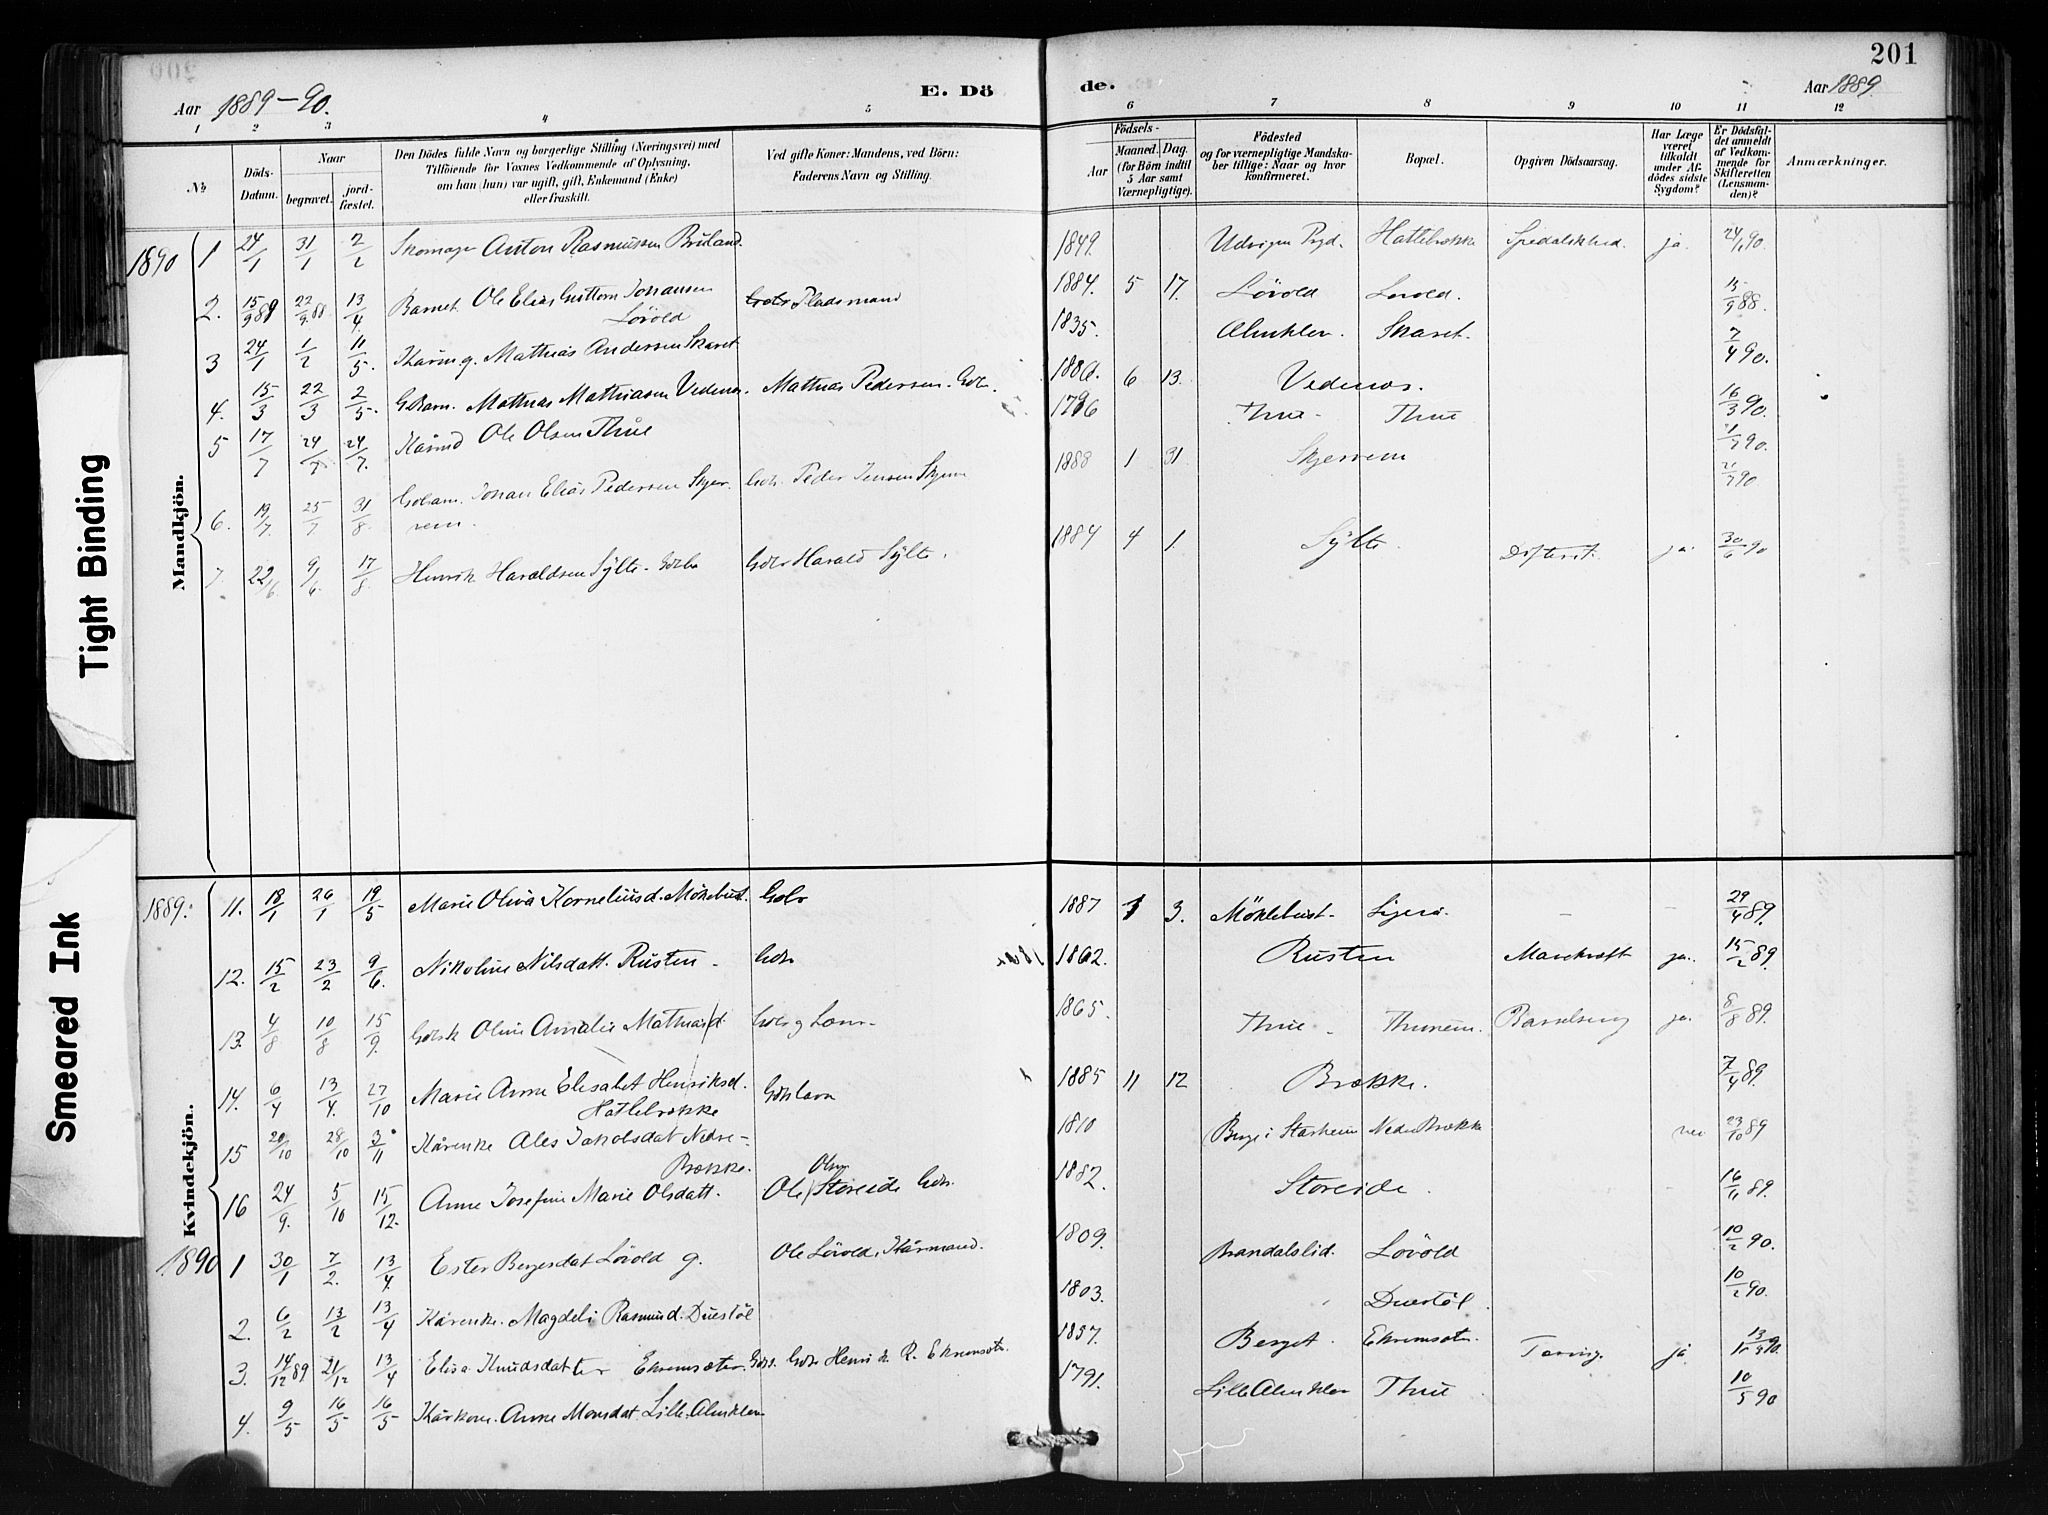 201
Aar 1889-90.
E. Dö
de.
Aar 1889.
1 2 3 4 5
6 7 8 9 10 11 12
No
Döds-Datum.
Naar
begravet.
jord-fæstet.
Den Dödes fulde Navn og borgerlige Stilling (Næringsvei) med
Tilföiende for Voxnes Vedkommende af Oplysning,
om han (hun) var ugift, gift, Enkemand (Enke)
eller fraskilt.
Ved gifte Koner: Mandens, ved Börn:
Faderens Navn og Stilling.
Födsels-
Aar
Maaned. Dag.
(for Börn indtil
5 Aar samt
Værnepligtige).
Födested
og for værnepligtige Mandska-
ber tillige: Naar og hvor
konfirmeret.
Bopæl.
Opgiven Dödsaarsag.
Har Læge
været
tilkaldt
under Af-
dödes sidste
Sygdom?
Er Dödsfal-
det anmeldt
af Vedkom-
mende for
Skifteretten
(Lensman-
den)?
Anmærkninger.
Tight Binding
Smeared Ink
Mandkjön.
1890 1 24/1 31/1 2/2 Anton Rasmussen Bruland. 1849. Hattebrække Spedalskhed. ja. 24/1 90.
2. 15/9 88 22/9 88 13/4 Barnet Ole Elias Guttorm Johansen Lövold Pladsmand 1884. 5 17. Lövold Lovold. 15/9 88.
3 24/1 1/2 11/5. Mathias Andersen Skaret 1835. Almklov. Skaret. 7/4 90.
4. 15/3 22/3 2/5. Mathias Mathiasen Vedenos. Mathias Pedersen. Gbr. 6 13. Vedenos. 16/3 90.
5 17/7 24/7 24/7. Ole Olsen Thue 1796 Thue Thue 90.
6. 19/7 25/7 31/8 Johan Elias Pedersen Skjer-
rem. Gbr. Peder Jensen 1888 1 31 Skjerrem 90
7. 22/6 9/6 17/8. Henrik Haraldsen Sylte. Gbr Harald Sylte. 1884 4 1. Sylte. Difterit. ja. 30/6 90
Kvindekjön.
1889. 11. 18/1 26/1 19/5 Marie Oliva Korneliusd. Möklebust. Gbr 1887 1 3. Möklebust. 29/4 89.
12. 15/2 23/2 9/6. Nikoline Nilsdatt. Rusten. Gbr 1862. Rusten Mavekræft ja. 15/2 89.
13. 4/8 10/8 15/9. Oline Amalie Mathiasd. 1865. Thue Thunem. Barselseng ja. 8/8 89.
14. 6/4 13/4. 27/10 Marie Anne Elisabet Henriksd.
Hattebrække 1885 11 12 Brække. 7/4 89.
15 20/10 28/10 3/11 Kårenke Ales Jakobsdat Nedre-
Brække. 1810 Starheim Nedre Brække nei 23/10 89
16 24/9. 5/10 15/12. Anne Josefine Marie Olsdatt. Ole Olsen Storeide Gbr. 1882. Storeide. 16/11 89.
1890 1 30/1 7/2. 13/4. Ester Bergesdat Lövold g. Ole Lövold, Kårmand. 1809. Brandalslid. Lövold 10/2 90.
2. 6/2 13/2 13/4 Kårenke. Magdeli Rasmusd. Duestöl 1803. Duestöl. 10/2 90.
3. 14/12 89 21/12 13/4 Elisa Knudsdatter Ekremsæter. Gbr Henrik R. Ekremsæter 1857. Berget. Ekremsæter. Tæring. ja.
4. 9/5 16/5 16/5 Kårkone. Anne Monsdat. Lille Almklov 1791. Lille Almklov Thue 10/5 90